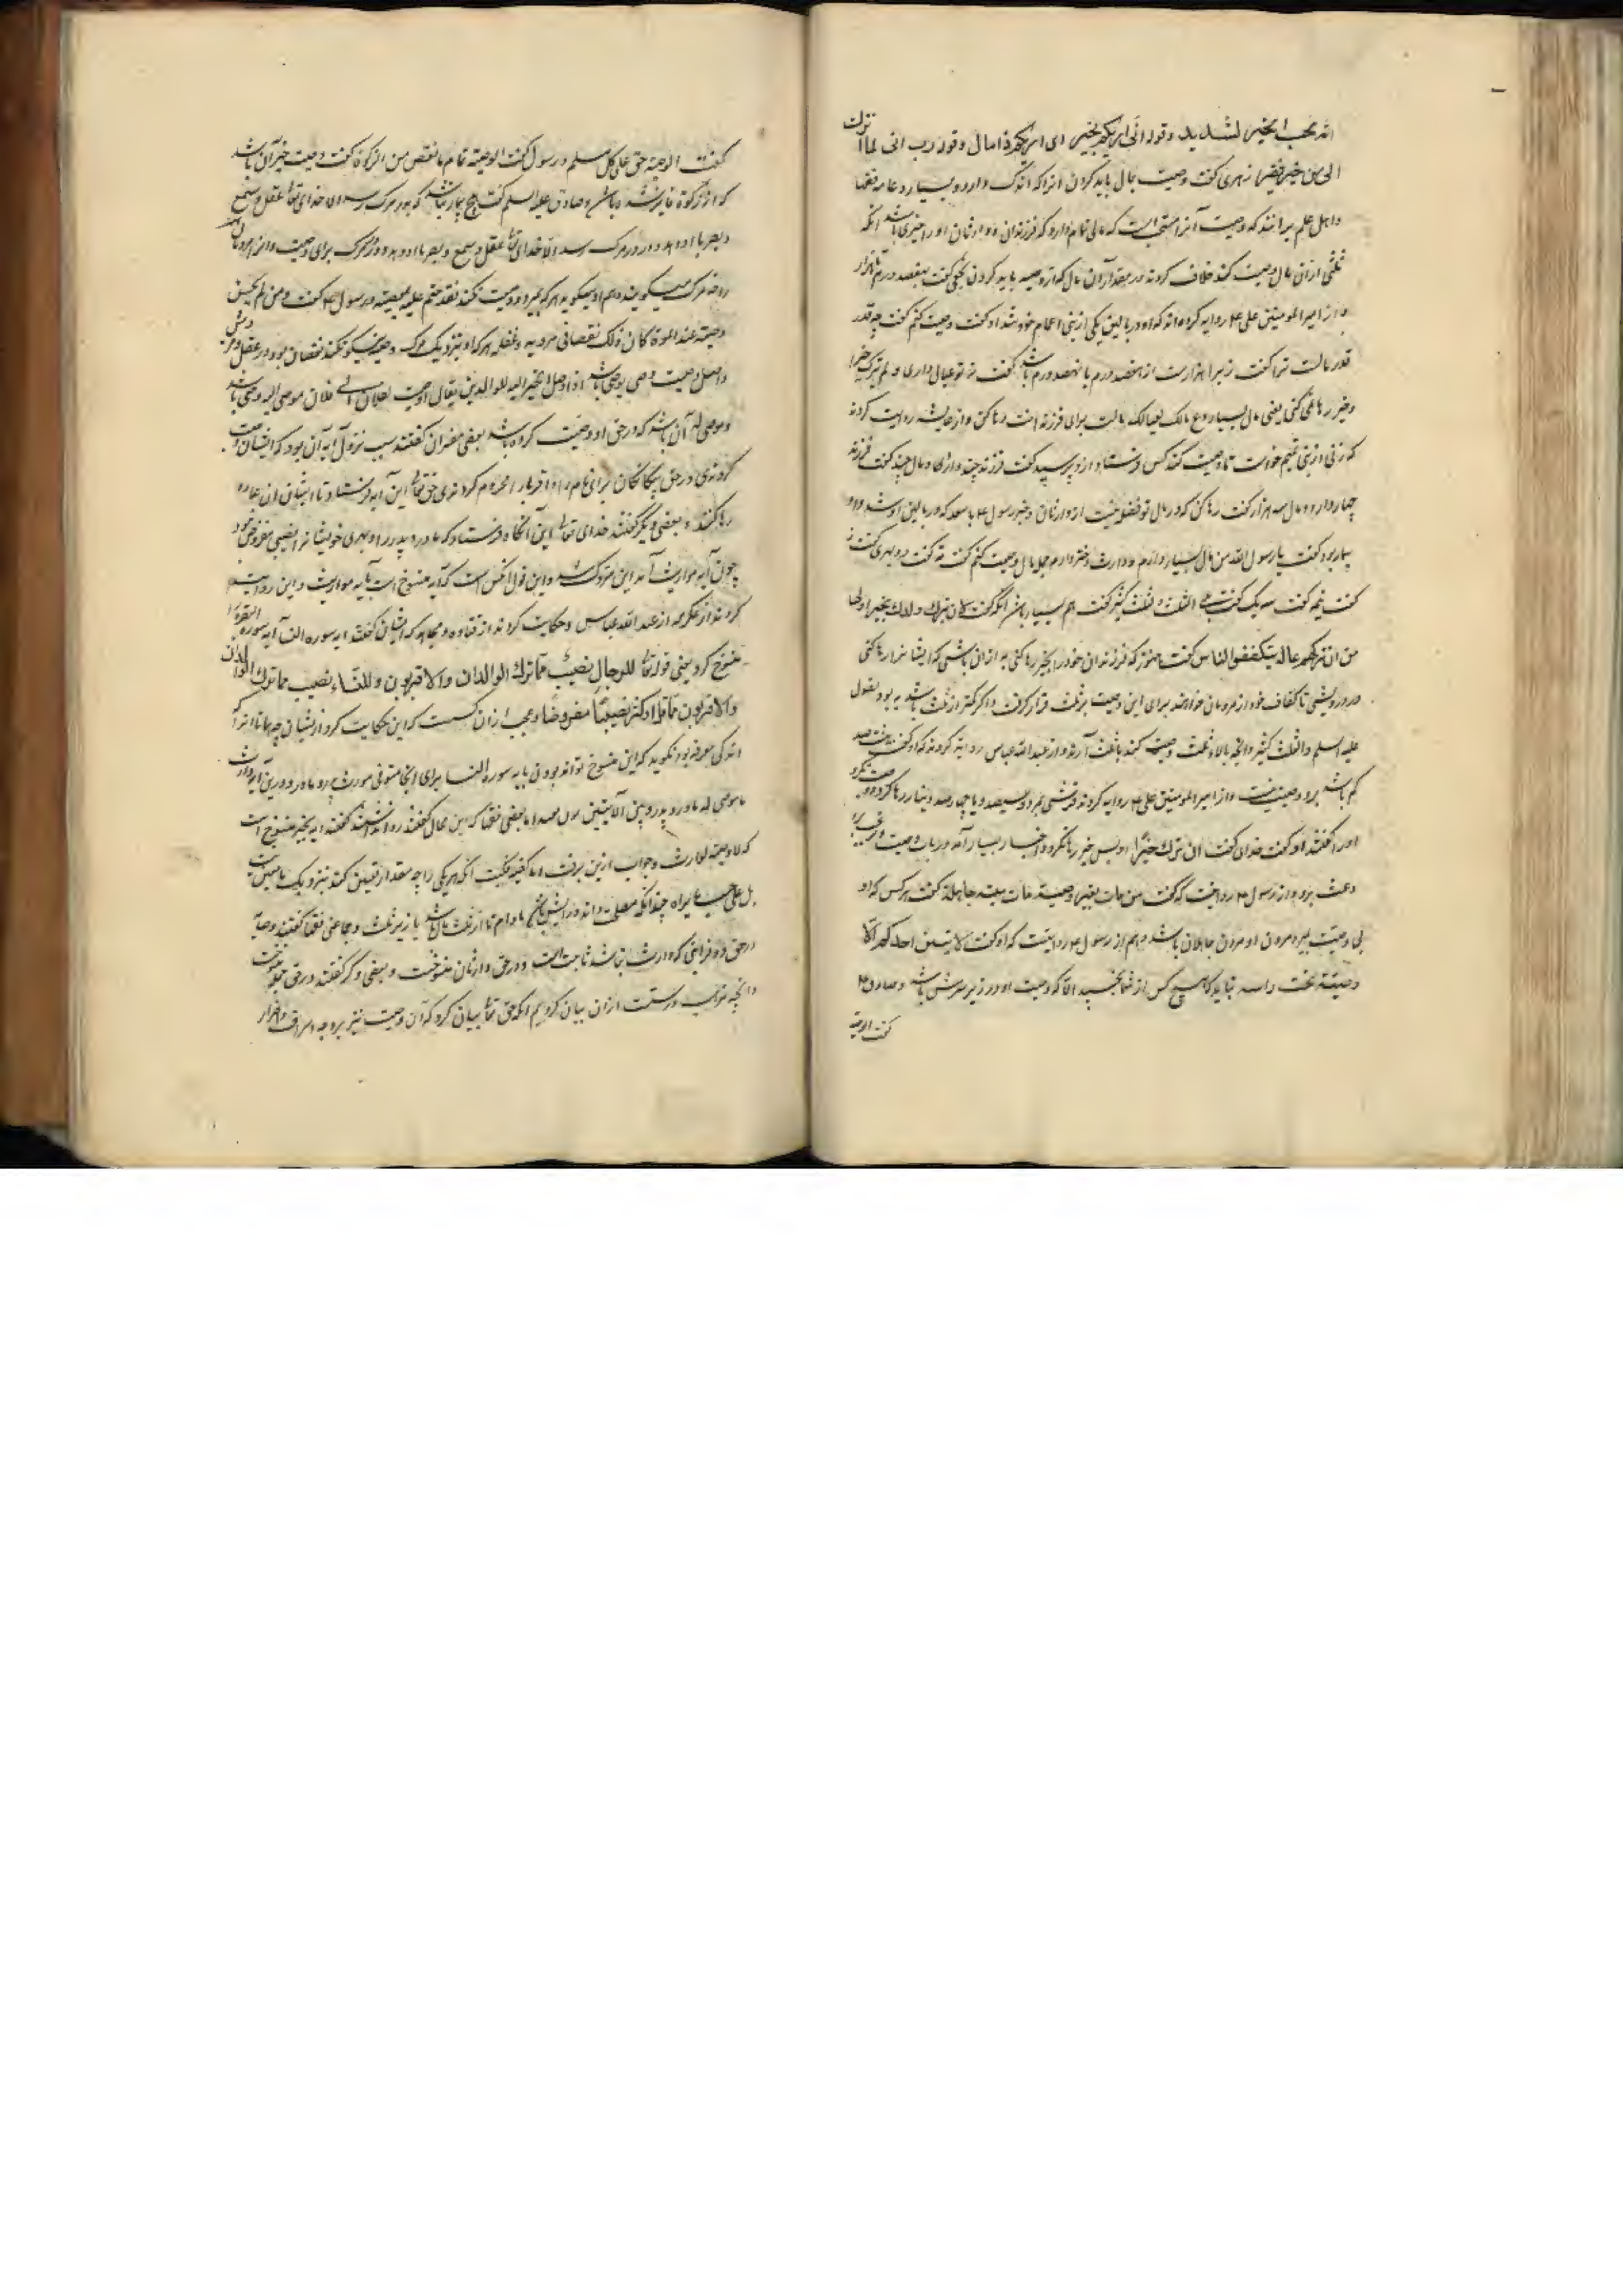 انه لحب الخیر لشدید وقوله انی اریکم بخیر ای اریکم ذا مال و قوله رب انی لما
الی من خیر فقیر زهری گفت وصیت بمال باید کردن انرا که اندک دارد و بسیار و عامه فقها
و اهل علم برانند که وصیت آنرا مستحب است که مالی تمام دارد که فرزندان و وارثان او را خیری باشد آنکه
ثلثی ازان مال وصیت کند خلاف کردند در مقدار آن مال که ازو وصیه باید کردن نخعی گفت پانصد درم تا هزار
و از امیر المومنین علی ع روایه کرده اند که او در بالین یکی از بنی اعمام خود شد او گفت وصیت کنم گفت چه قدر
قدر مالت ترا گفت زیرا هزارست از هفصد درم یا نهصد درم باشد گفت نه تو عیال داری و لم تترک خیرا
و خیر رها نمی کنی یعنی مال بسیار دع مالک لعیالک مالت برای فرزندانت رها کن و از عایشه روایت کردند
که زنی از بنی تمیم خواست تا وصیت کند کس فرستاد و ازو پرسید گفت فرزند چند داری و مال چند گفت فرزند
چهار دارد و مال سه هزار گفت رها کن که در مال تو فضلی نیست از وارثان و خبر رسول ع با سعد که در بالین او شد و او
بیمار بود گفت یا رسول الله من مال بسیار دارم و وارث دختر دارم جمله مال وصیت کنم گفت نه گفت دو بهری گفت نه
گفت نیمه گفت سه یک گفت الثلث و الثلث کثیر گفت هم بسیار باشد آنگه گفت لان تترک ولدک بخیر اولی
من ان تترکهم عالة یتکففوا الناس گفت هنوز که فرزندان خود را بخیر رها کنی به ازان باشی که ایشانرا رها کنی
در درویشی تا کفاف خود از مردمان خواهند برای این وصیت بر ثلث قرار گرفت و اگر کمتر از ثلث باشد به بود بقول
علیه السلم و الثلث کثیر و آنچه بالاء ثلث وصیت کند باثلث آرند و از عبد الله عباس روایة کردند که او گفت هفتصد
کم باشد برو وصیت نیست و از امیر المومنین علی ع روایه کردند قرشی بمرد و سیصد و یا چهارصد دینار رها کرد و وصیت نکرد
او را گفتند او گفت خدای گفت ان ترک خیرا او بس خیر رها نکرد و اخبار بسیار آمد در باب وصیت و ترغیب
و حث برو و از رسول ع روایت که گفت من مات بغیر وصیة مات میتة جاهلة گفت هر کس که او
بی وصیت بمیرد مردن او مردن جاهلان باشد و هم از رسول ع روایتست که او گفت لا یبیتن احدکم الا
وصیته تحت راسه نباید که هیچ کس از شما بخسپد الا که وصیت او در زیر سرش باشد و صادق ع
گفت الوصیة
گفت الوصیة حق علی کل مسلم و رسول گفت الوصیة تمام ما نقص من الزکوة گفت وصیت خیر آن باشد
که از زکوة فایت شده باشد و صادق علیه السلم گفت هیچ بیمار نباشد که بدو مرگ رسد خدای تعا عقل و سمع
و بصر با او دهد
روضه مرگ میگویند و هم او میگوید هر که بمیرد و وصیت نکند فقد ختم عمله بمعصیة و رسول ع گفت و من لم یحسن
وصیته عند الموت کان ذلک نقصا فی مروته و عقله هر که او بنزدیک مرگ وصیت نیکو نکند نقصانی بود در عقل و مروتش
و اصل وصیت وصی یوصی باشد اذا وصل الخیر الیه للوالدین یقال اوصیت لفلان الی فلان موصی الیه وصی باشد
و موصی له آن باشد که در حق او وصیت کرده باشد بعضی مفسران گفتند سبب نزول آیه آن بود که ایشان وصیت
کردندی در حق بیگانگان برای نام را و اقربا را محروم کردندی حق تعا این آیه فرستاد تا ایشان ان عادت
رها کنند و بعضی دیگر گفتند خدای تعالی این آنگاه فرستاد که مادر و پدر را و بهری خویشانرا نصیبی مفروض نبود
چون آیه مواریث آمد این متروک شد و این قول آنکس است که آیه منسوخ است بآیه مواریث و این روایت
کردند از عکرمه از عبد الله عباس و حکایت کردند از قتاده و مجاهد که ایشان گفتند ایه سوره النسا آیه سورة البقرة را
منسوخ کرد یعنی قوله تعا للرجال نصیب مما ترک الوالدان والاقربون وللنساء نصیب مما ترک الوالدان
والاقربون مما قل او کثر نصیبا مفروضا و عجب ازان کسست که این حکایت کرد از ایشان
اندکی معرفه بود نگوید که این منسوخ تواند بودن بایه سوره النسا برای آنجا متوفی مورث پدر و مادر و درین آیه وارث
ما موصی له مادر و پدر و بین الآیتین اما بعضی فقها که این محال گفتند
که لا وصیة لوارث و جواب ازین برفت اما کیفیه وصیت آنکه هر یکی را چه مقدار تعیین کند نزدیک ما
بل علی حسب ما یراه چندانکه مصلحت داند ما دام تا از ثلث مال باشد یا زیر ثلث و جماعتی فقها گفتند وصایه
در حق ذو قرابتی که وارث نباشد ثابت است و در حق وارثان منسوخست و بعضی دگر گفتند در حق جمله
و آنچه مذهب درستست ازان بیان کردیم آنگه حق تعا بیان کرد که آن وصیت نیز بر وجه اسراف و اضرار